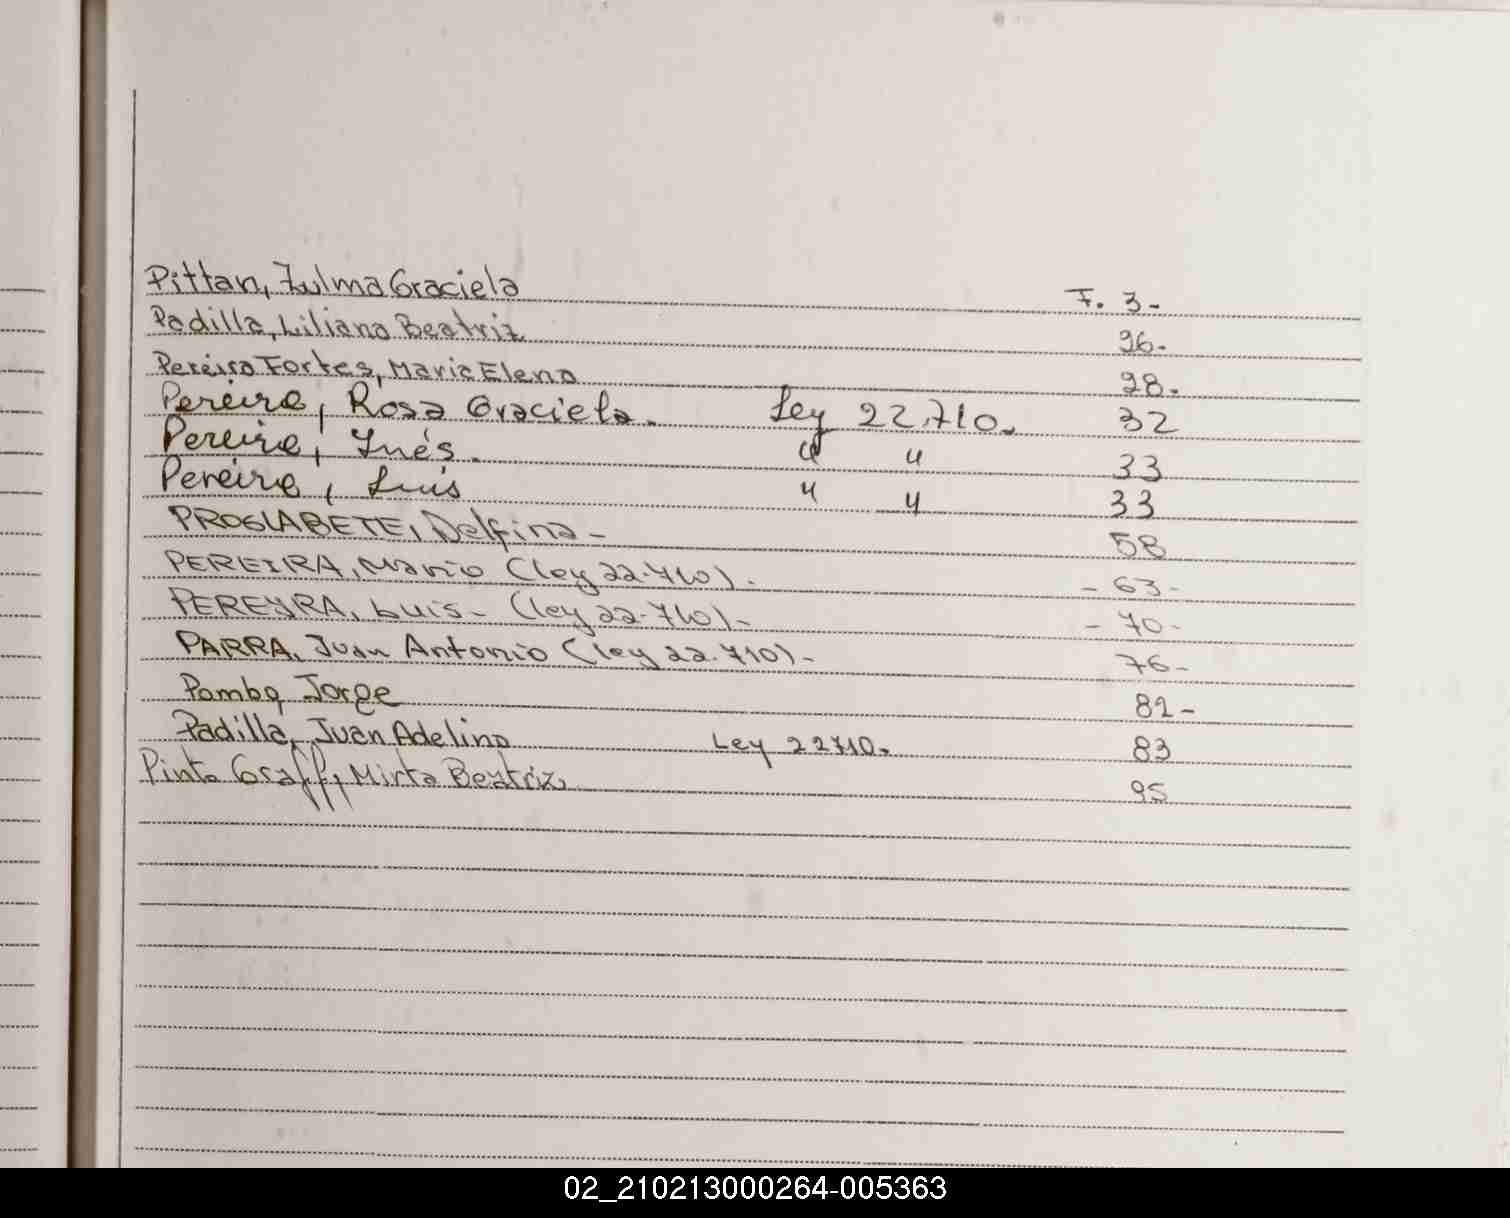 Pittan, Zulma Graciela F. 3-
Padilla, Liliana Beatriz 26-
Pereira Fortes, Maria Elena 28-
Pereira, Rosa Graciela. Ley 22.710. 32
Pereira, Inés. " " 33
Pereira, Luis " " 33
PROGLABETE, Delfina- 58
PEREIRA, Mario (ley 22.710). - 63-
PEREYRA, Luis- (ley 22.710)- - 70-
PARRA, Juan Antonio (ley 22.710)- 76-
Jorge 82-
Padilla, Juan Adelino Ley 22710. 83
Pinto Graff, Mirta Beatriz. 95
02_210213000264-005363